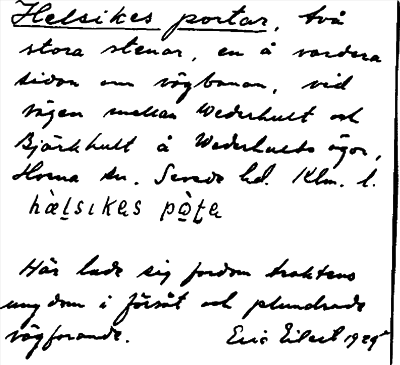 Helsikes portar, två
stora stenar, en å vardera
sidan om vägbanan, vid
vägen mellan Wederhult och
Bjärkhult å Wederhults ägor,
sn. Sevede hd. Klm. l.
hæ̀ḷsıkɐs pò̤ṭɐ
Här lade sig fordom traktens
ungdom i försåt och plundrade
vägfarande. Eric Eilert 1929